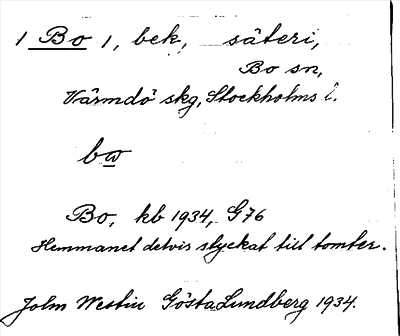 1 Bo 1, bek, säteri,
Bo sn,
Värmdö skg, Stockholms l.
bw
Bo, kb 1934, G76
Hemmanet delvis styckat till tomter.
John Westin Gösta Lundberg 1934.